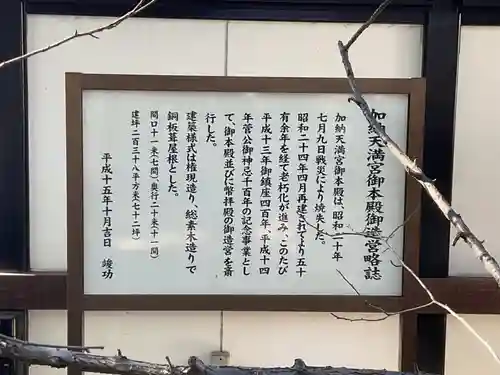 加納天満宮御本殿御造営略誌
加納天満宮御本殿は、昭和二十年
七月九日戦災により焼失した。
昭和二十四年四月再建されてより五十
有余年を経て老朽化が進み、このたび
平成十三年御鎮座四百年、平成十四
年菅公御神忌千百年の記念事業とし
て、御本殿並びに幣拝殿の御造営を斎
行した。
建築様式は権現造り、総素木造りで
銅板葺屋根とした。
間口十一米(七間)奥行二十米(十一間)
建坪二百三十八平方米(七十二坪)
平成十五年十月吉日 竣功